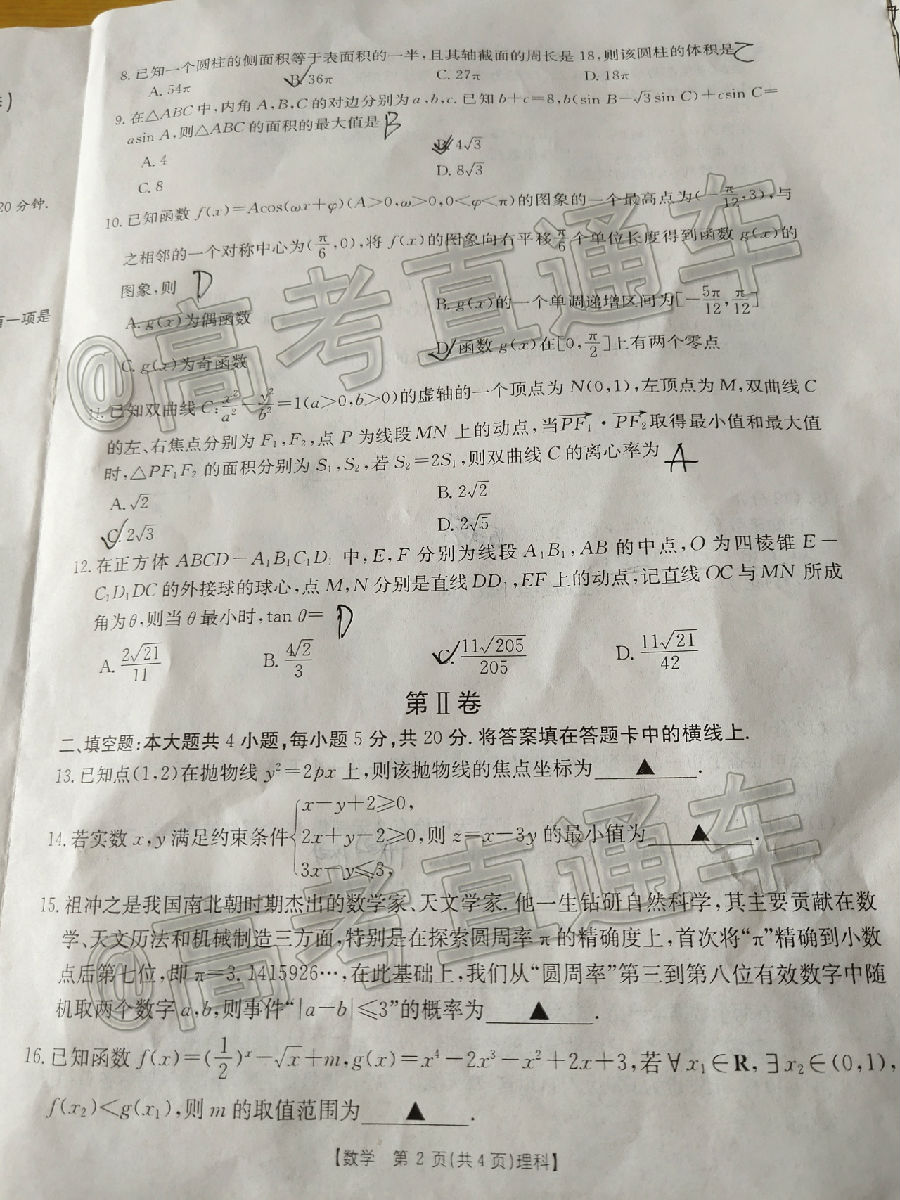 8. 已知一个圆柱的侧面积等于表面积的一半,且其轴截面的周长是 18,则该圆柱的体积是 C
A. 54π B. 36π C. 27π D. 18π
9. 在△ABC 中,内角 A,B,C 的对边分别为 a,b,c. 已知 b+c=8,b(sin B-√3sin C)+csin C=
20分钟.
asin A,则△ABC 的面积的最大值是 B
A. 4 B. 4√3
C. 8 D. 8√3
10. 已知函数 f(x)=Acos(ωx+φ)(A>0,ω>0,0<φ<π)的图象的一个最高点为(-π/12,3),与
之相邻的一个对称中心为(π/6,0),将 f(x)的图象向右平移 π/6 个单位长度得到函数 g(x)的
一项是
图象,则 D
A. g(x)为偶函数 B. g(x)的一个单调递增区间为[-5π/12,π/12]
C. g(x)为奇函数 D. 函数 g(x)在[0,π/2]上有两个零点
已知双曲线 C:x²/a²-y²/b²=1(a>0,b>0)的虚轴的一个顶点为 N(0,1),左顶点为 M,双曲线 C
的左、右焦点分别为 F₁,F₂,点 P 为线段 MN 上的动点,当PF₁·PF₂取得最小值和最大值
时,△PF₁F₂ 的面积分别为 S₁,S₂,若 S₂=2S₁,则双曲线 C 的离心率为 A
A. √2 B. 2√2
C. 2√3 D. 2√5
12. 在正方体 ABCD-A₁B₁C₁D₁ 中,E,F 分别为线段 A₁B₁,AB 的中点,O 为四棱锥 E-
C₁D₁DC 的外接球的球心,点 M,N 分别是直线 DD₁,EF 上的动点,记直线 OC 与 MN 所成
角为 θ,则当 θ 最小时,tan θ= D
A. 2√21/11 B. 4√2/3 C. 11√205/205 D. 11√21/42
第Ⅱ卷
二、填空题:本大题共 4 小题,每小题 5 分,共 20 分. 将答案填在答题卡中的横线上.
13. 已知点(1,2)在抛物线 y²=2px 上,则该抛物线的焦点坐标为 ▲ .
14. 若实数 x,y 满足约束条件{x-y+2≥0, 2x+y-2≥0, 3x-y≤3, 则 z=x-3y 的最小值为 ▲ .
15. 祖冲之是我国南北朝时期杰出的数学家、天文学家. 他一生钻研自然科学,其主要贡献在数
学、天文历法和机械制造三方面,特别是在探索圆周率 π 的精确度上,首次将“π”精确到小数
点后第七位,即 π=3.1415926…,在此基础上,我们从“圆周率”第三到第八位有效数字中随
机取两个数字 a,b,则事件“|a-b|≤3”的概率为 ▲ .
16. 已知函数 f(x)=(1/2)ˣ-√x+m,g(x)=x⁴-2x³-x²+2x+3,若∀x₁∈R,∃x₂∈(0,1),
f(x₂)<g(x₁),则 m 的取值范围为 ▲ .
【数学 第 2 页(共 4 页)理科】
@高考直通车
@高考直通车